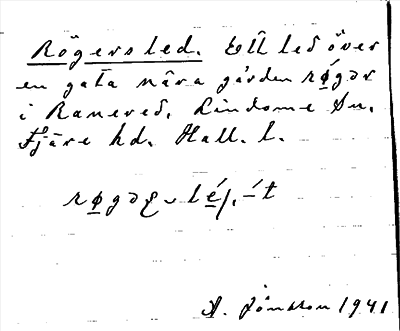 Rögersled. Ett led över
en gata nära gården røgər
i Ranered, Lindome Sn,
Fjäre hd. Hall. l.
A. Jönsson 1941